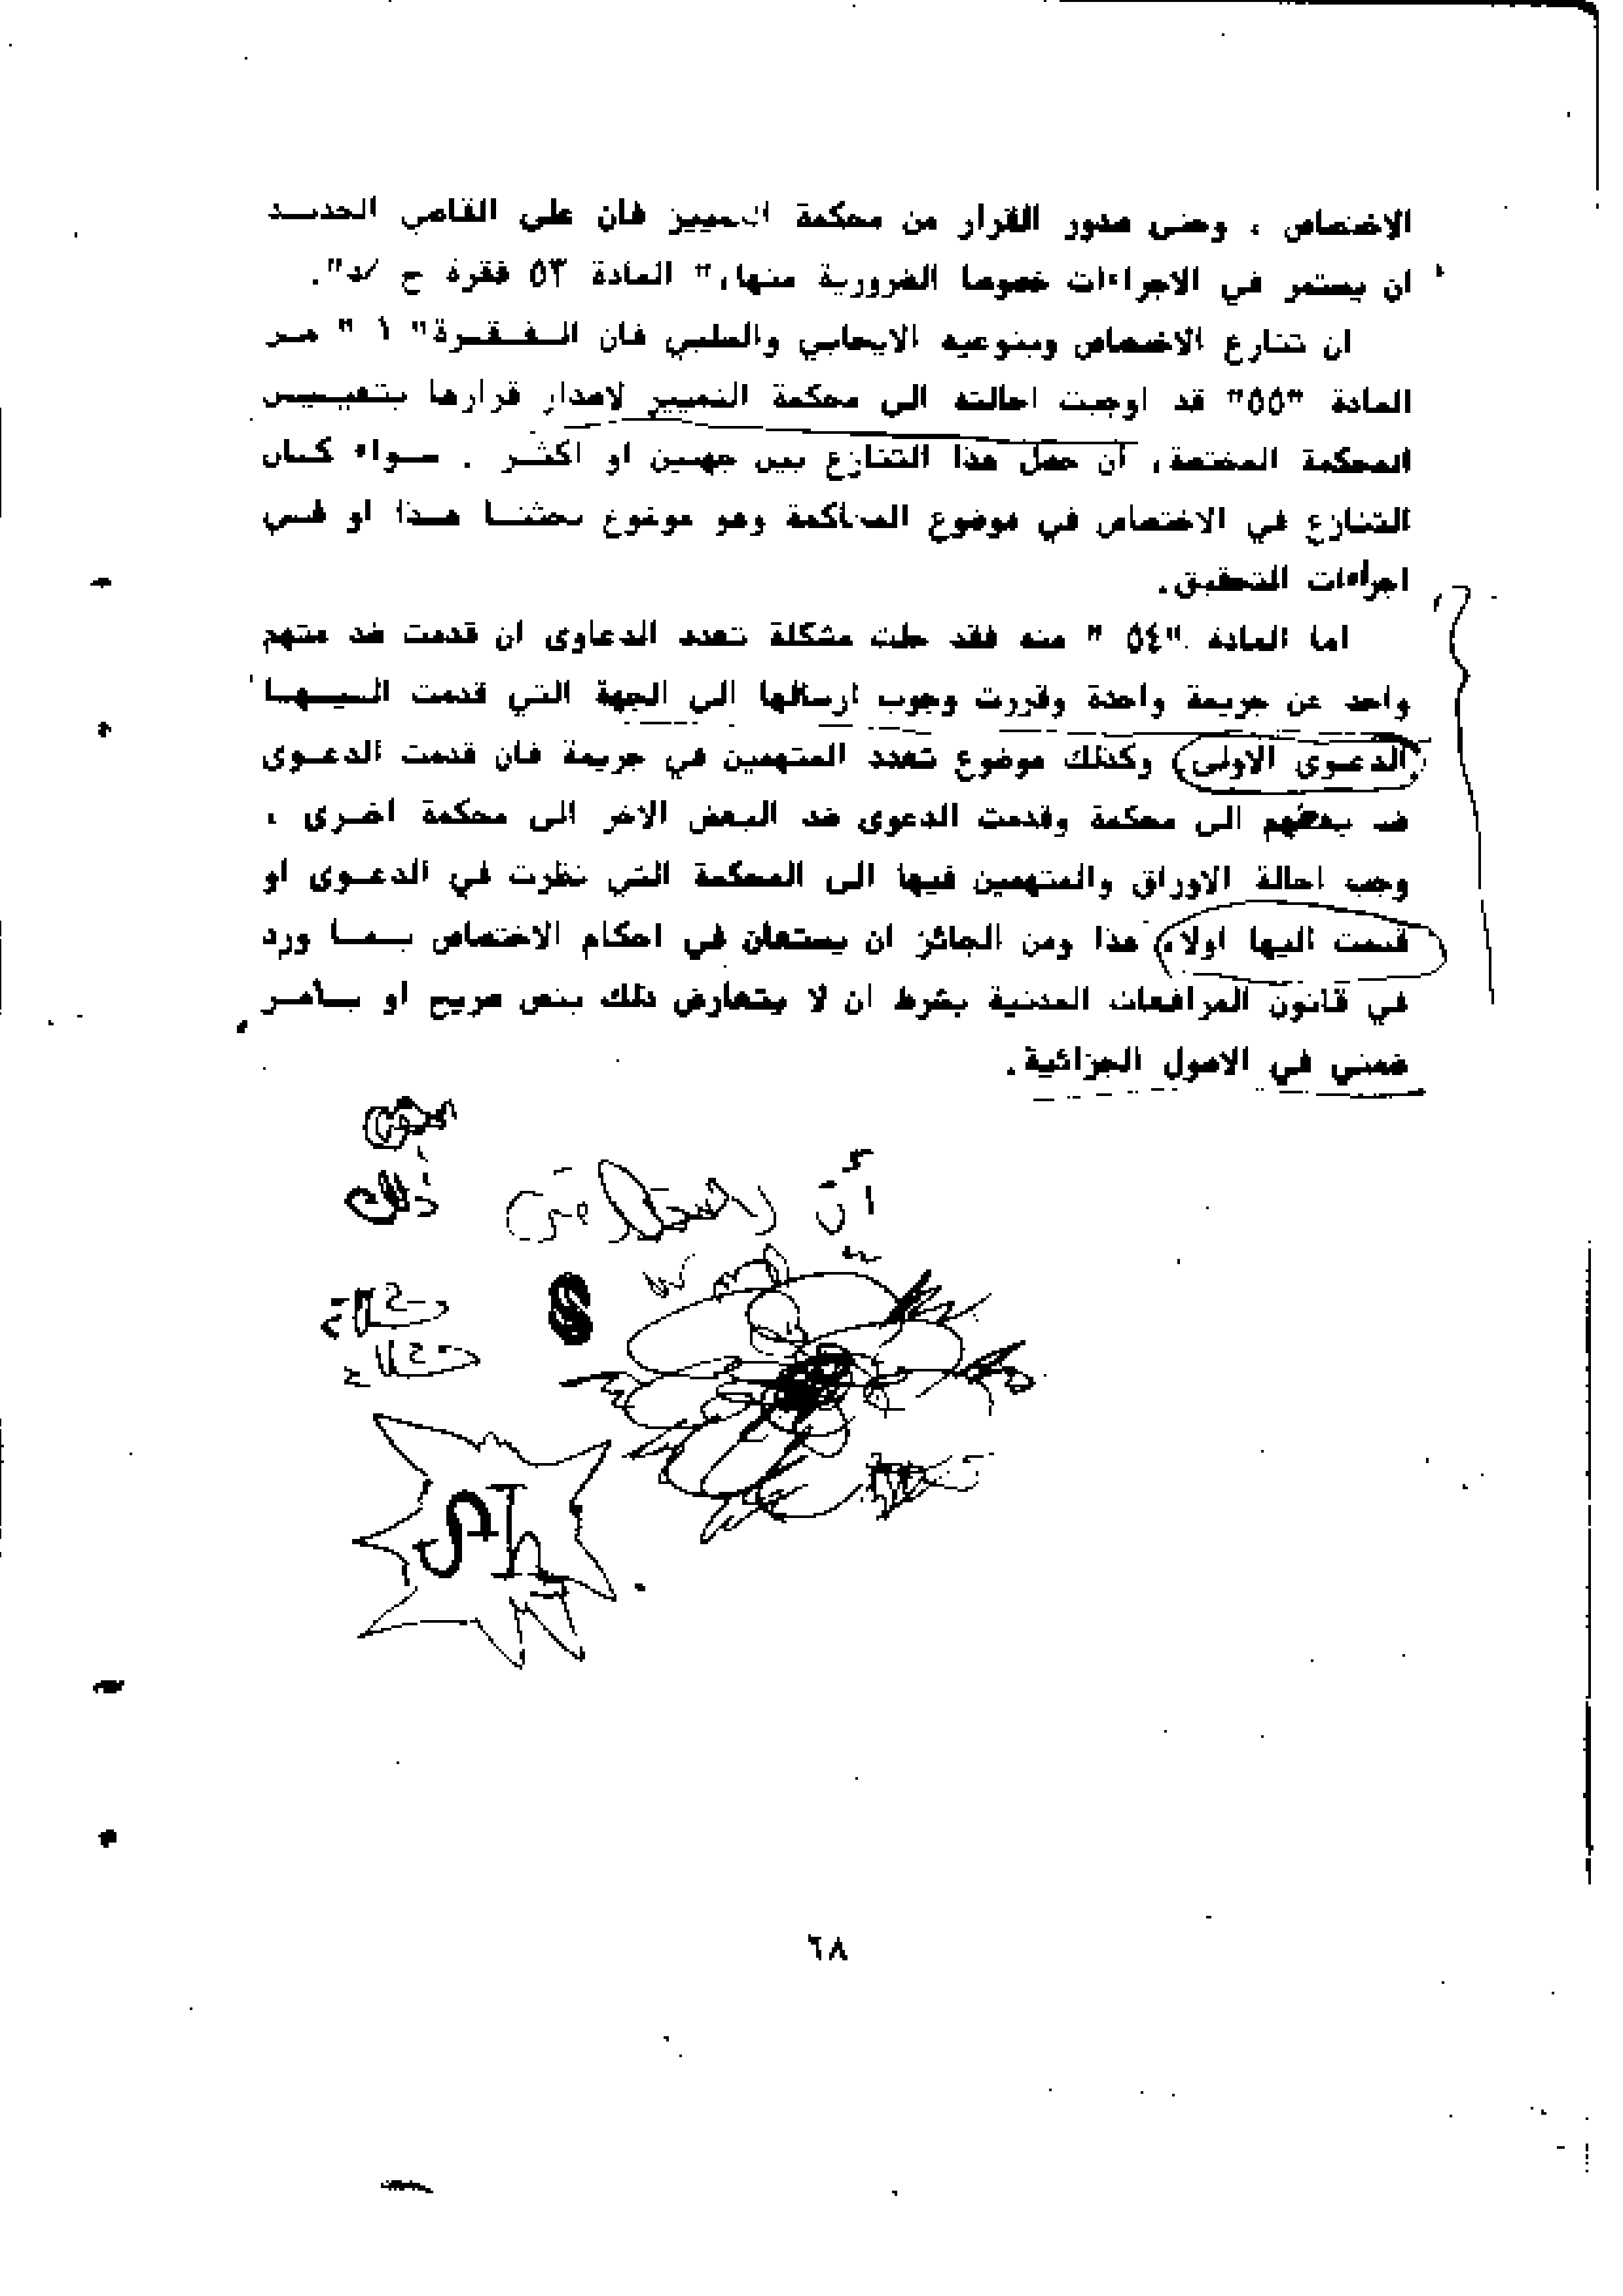 الاختصاص ، وحتى صدور القرار من محكمة التمييز فان على القاضي الجديد
ان يستمر في الاجراءات خصوصا الضرورية منها، " المادة ٥٣ فقرة ج /د".
ان تنازع الاختصاص وبنوعيه الايجابي والسلبي فان الفقرة" ١ " من
المادة "٥٥" قد اوجبت احالته الى محكمة التمييز لاصدار قرارها بتعييين
المحكمة المختصة، ان حصل هذا التنازع بين جهتين او اكثر . سواء كان
التنازع في الاختصاص في موضوع المحاكمة وهو موضوع بحثنا هذا او في
اجراءات التحقيق.
اما المادة "٥٤ " منه فقد حلت مشكلة تعدد الدعاوى ان قدمت ضد متهم
واحد عن جريمة واحدة وقررت وجوب ارسالها الى الجهة التي قدمت اليها
الدعوى الاولى، وكذلك موضوع تعدد المتهمين في جريمة فان قدمت الدعوى
ضد بعضهم الى محكمة وقدمت الدعوى ضد البعض الاخر الى محكمة اخرى ،
وجب احالة الاوراق والمتهمين فيها الى المحكمة التي نظرت في الدعوى او
قدمت اليها اولا، هذا ومن الجائز ان يستعان في احكام الاختصاص بما ورد
في قانون المرافعات المدنية بشرط ان لا يتعارض ذلك بنص صريح او بأمر
ضمني في الاصول الجزائية.
٦٨